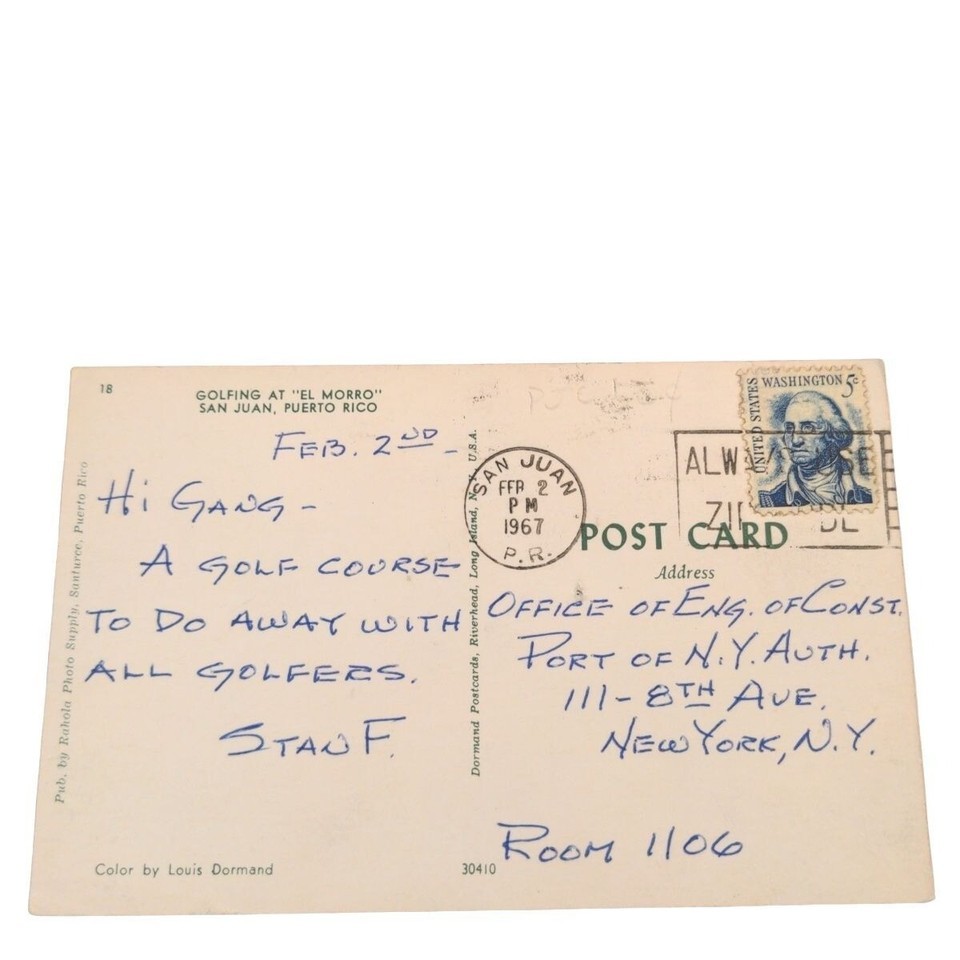 18
GOLFING AT "EL MORRO"
SAN JUAN, PUERTO RICO
FEB. 2ND -
HI GANG -
A GOLF COURSE
TO DO AWAY WITH
ALL GOLFERS.
STAN F.
Pub. by Rahola Photo Supply, Santurce, Puerto Rico
Color by Louis Dormand
30410
Dormand Postcards, Riverhead, Long Island, N.Y., U.S.A.
SAN JUAN
FEB 2
PM
1967
P.R.
UNITED STATES
WASHINGTON 5c
POST CARD
Address
OFFICE OF ENG. OF CONST.
PORT OF N.Y. AUTH.
111-8TH AVE.
NEW YORK, N.Y.
ROOM 1106